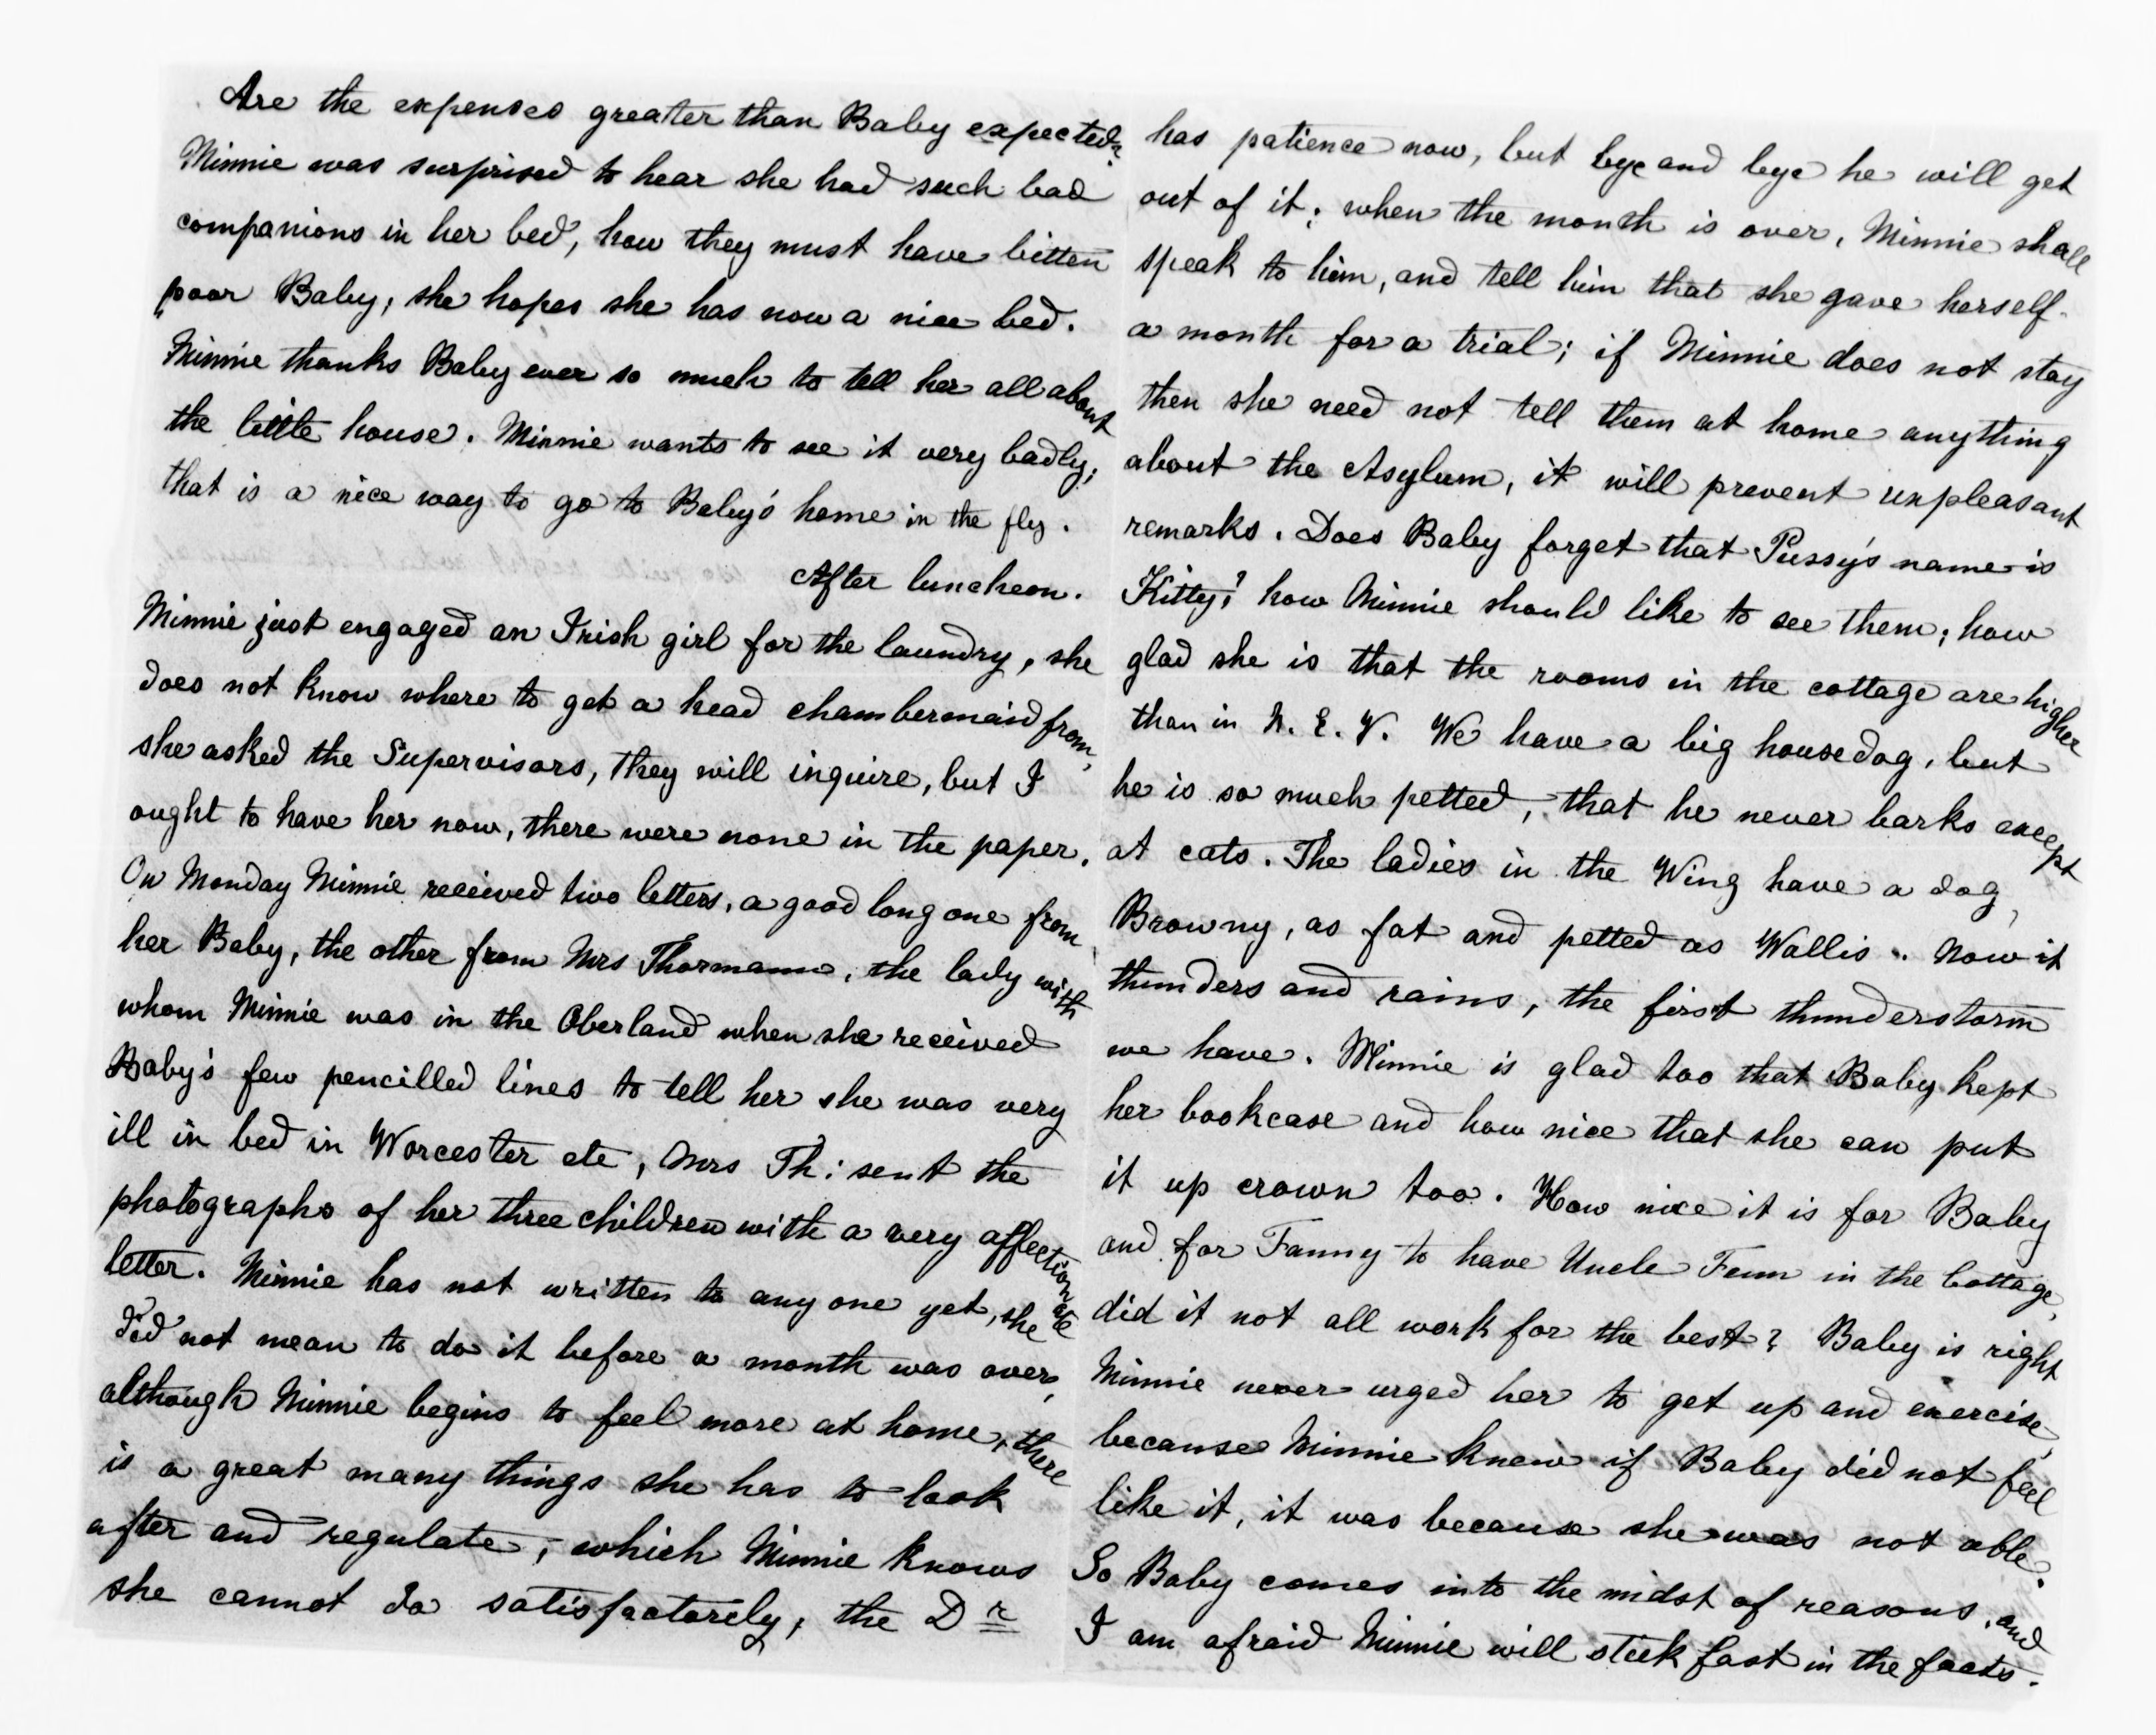 Are the expenses greater than Baby expected?
Minnie was surprised to hear she had such bad
companions in her bed, how they must have bitten
poor Baby; she hopes she has now a nice bed.
Minnie thanks Baby ever so much to tell her all about
the little house. Minnie wants to see it very badly;
that is a nice way to go to Baby's home in the fly.
After luncheon.
Minnie just engaged an Irish girl for the laundry, she
does not know where to get a head chambermaid from,
she asked the Supervisors, they will inquire, but I
ought to have her now, there were none in the paper.
On Monday Minnie received two letters, a good long one from
her Baby, the other from Mrs Thormann, the lady with
whom Minnie was in the Oberland when she received
Baby's few pencilled lines to tell her she was very
ill in bed in Worcester etc, Mrs Th: sent the
photographs of her three children with a very affectionate
letter. Minnie has not written to any one yet, she
did not mean to do it before a month was over,
although Minnie begins to feel more at home, there
is a great many things she has to look
after and regulate, which Minnie knows
she cannot do satisfactorily, the Dr
has patience now, but bye and bye he will get
out of it; when the month is over, Minnie shall
speak to him, and tell him that she gave herself
a month for a trial; if Minnie does not stay
then she need not tell them at home anything
about the Asylum, it will prevent unpleasant
remarks. Does Baby forget that Pussy's name is
Kitty? how Minnie should like to see them; how
glad she is that the rooms in the cottage are higher
than in N. E. V. We have a big housedog, but
he is so much petted, that he never barks except
at cats. The ladies in the Wing have a dog,
Browny, as fat and petted as Wallis. Now it
thunders and rains, the first thunderstorm
we have. Minnie is glad too that Baby kept
her bookcase and how nice that she can put
it up crown too. How nice it is for Baby
and for Fanny to have Uncle Fenn in the Cottage,
did it not all work for the best? Baby is right
Minnie never urged her to get up and exercise,
because Minnie knew if Baby did not feel
like it, it was because she was not able.
So Baby comes into the midst of reasons, and
I am afraid Minnie will stick fast in the facts.